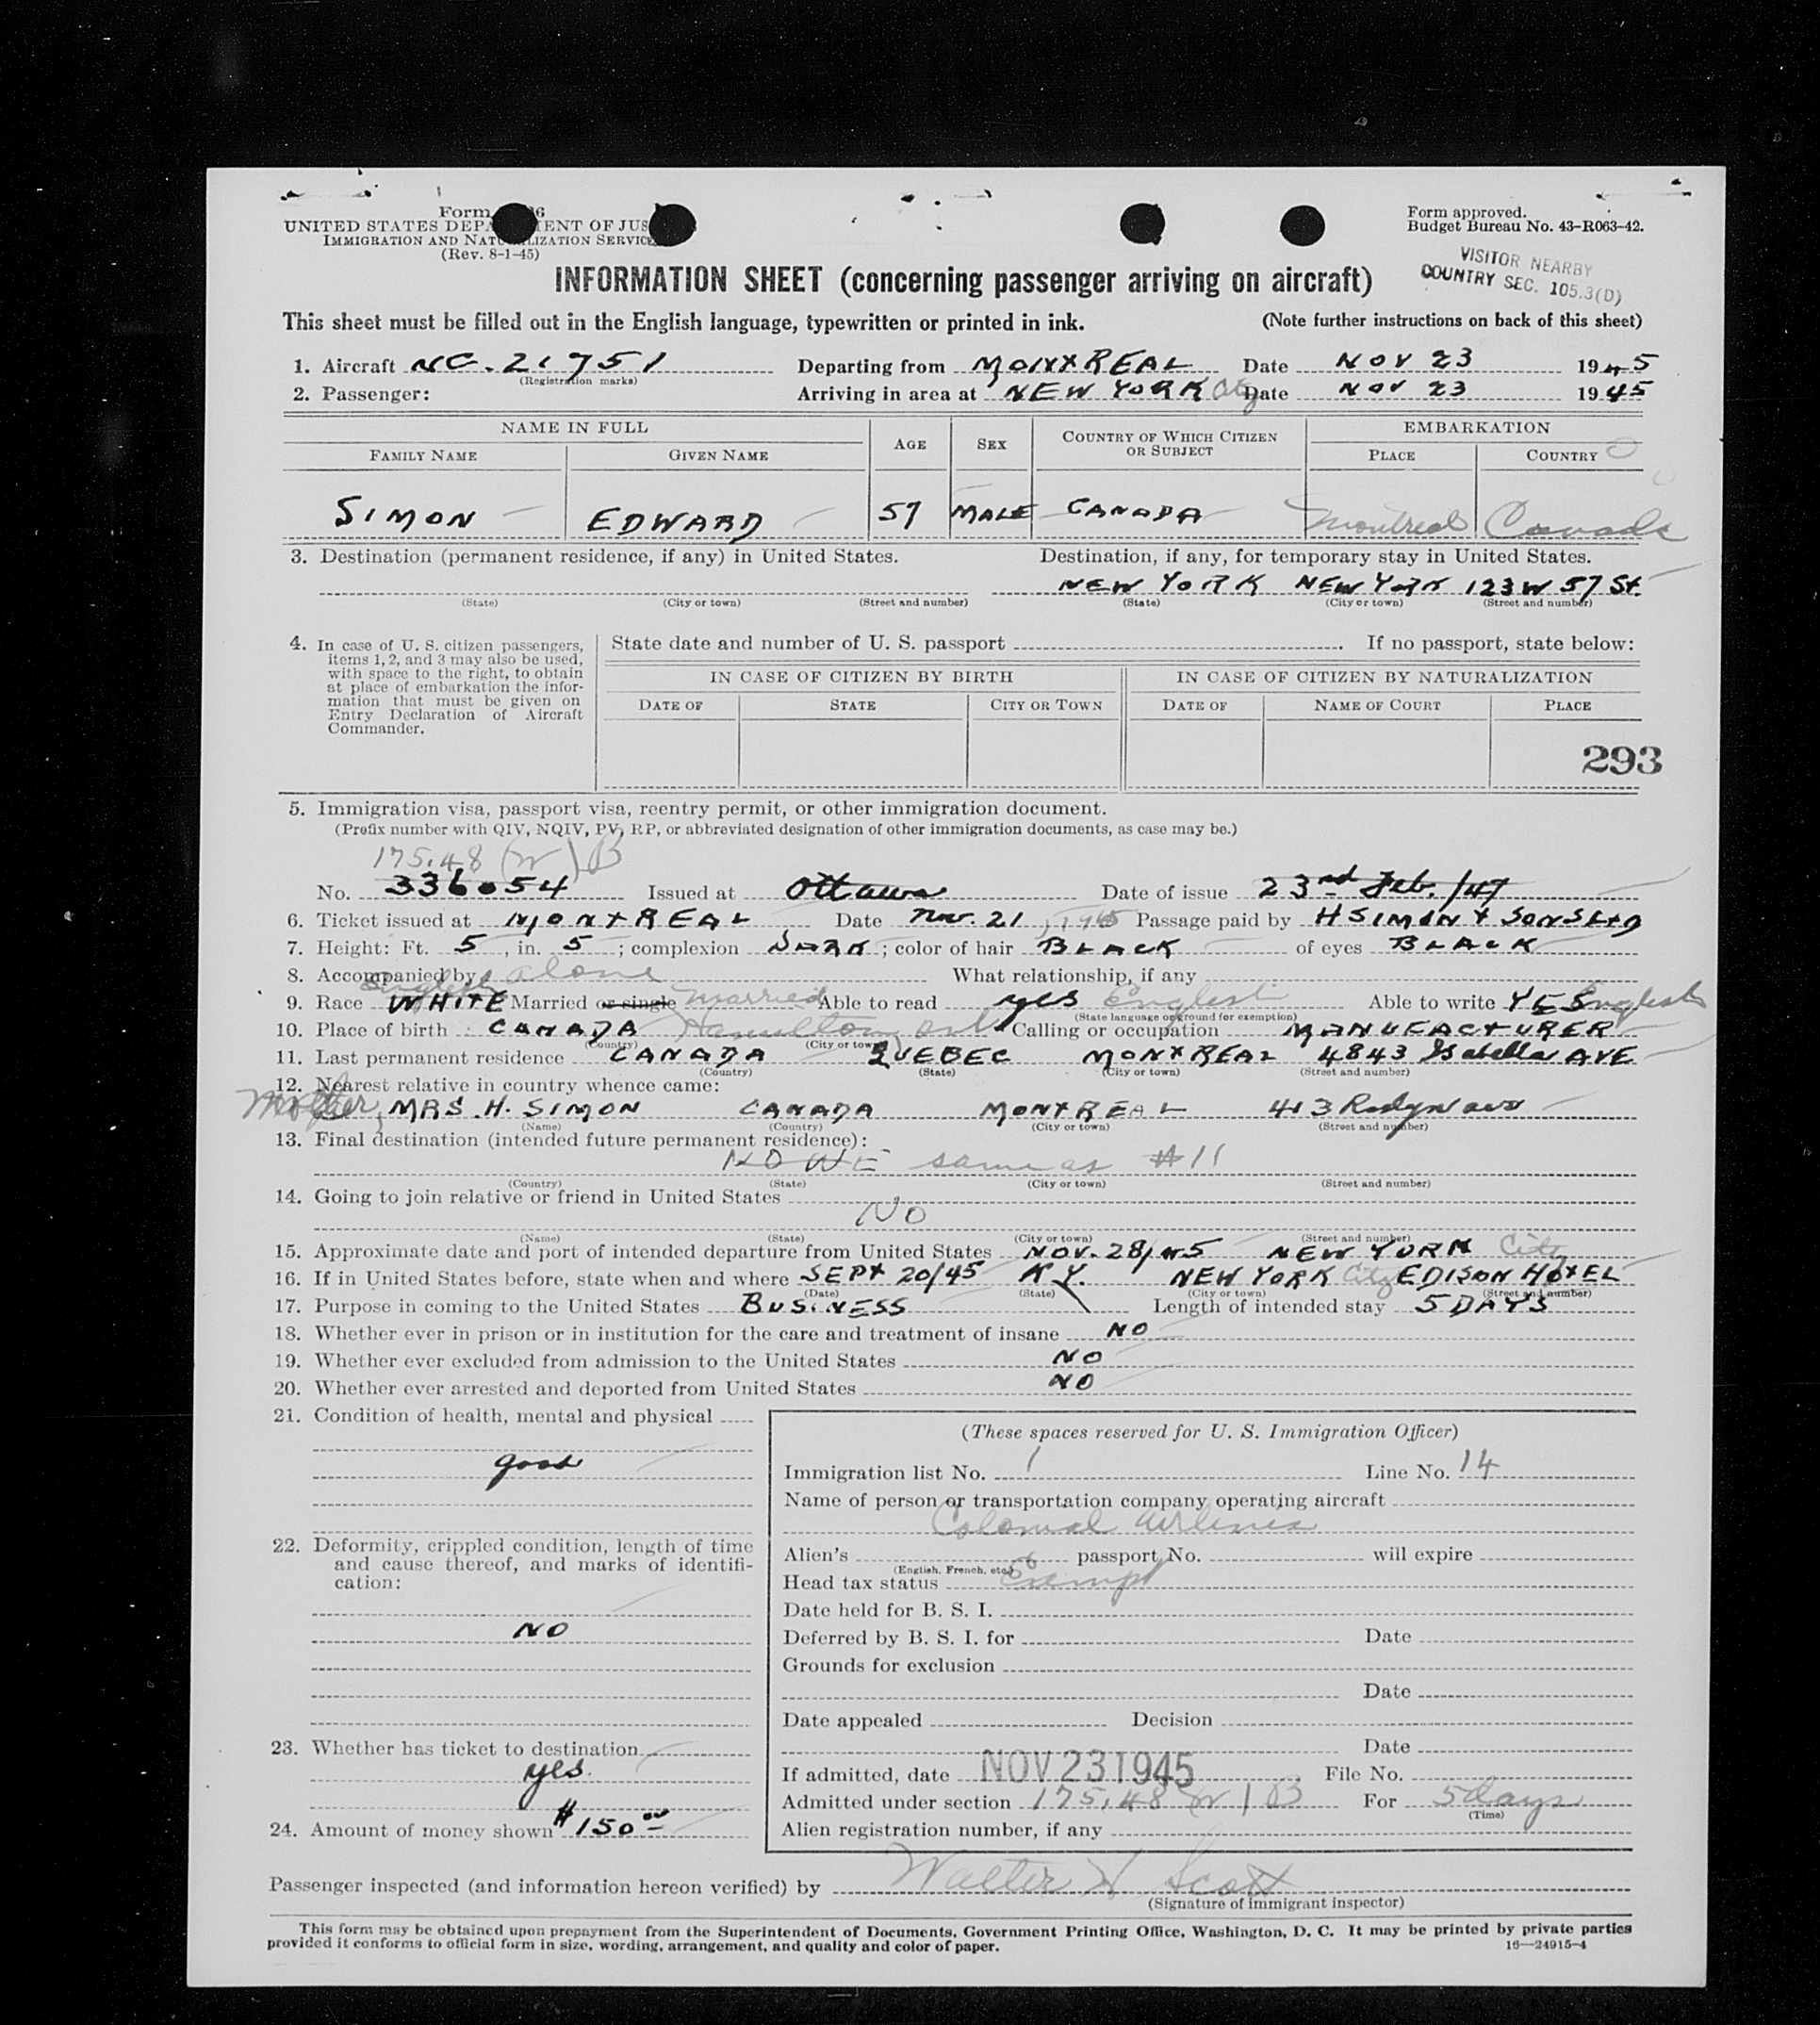 Form 6
UNITED STATES DEPA ENT OF JUS
IMMIGRATION AND NATU LIZATION SERVICE
(Rev. 8-1-45)
Form approved.
Budget Bureau No. 43-R063-42.
VISITOR NEARBY
COUNTRY SEC. 105.3(D)
INFORMATION SHEET (concerning passenger arriving on aircraft)
This sheet must be filled out in the English language, typewritten or printed in ink. (Note further instructions on back of this sheet)
1. Aircraft NC. 21751 Departing from MONTREAL Date NOV 23 1945
(Registration marks)
2. Passenger: Arriving in area at NEW YORK City Date NOV 23 1945
NAME IN FULL AGE SEX COUNTRY OF WHICH CITIZEN OR SUBJECT EMBARKATION
FAMILY NAME GIVEN NAME PLACE COUNTRY
SIMON EDWARD 57 MALE CANADA Montreal Canada
3. Destination (permanent residence, if any) in United States. Destination, if any, for temporary stay in United States.
NEW YORK NEW YORK 123 W 57 St.
(State) (City or town) (Street and number) (State) (City or town) (Street and number)
4. In case of U. S. citizen passengers, items 1, 2, and 3 may also be used, with space to the right, to obtain at place of embarkation the information that must be given on Entry Declaration of Aircraft Commander.
State date and number of U. S. passport . If no passport, state below:
IN CASE OF CITIZEN BY BIRTH IN CASE OF CITIZEN BY NATURALIZATION
DATE OF STATE CITY OR TOWN DATE OF NAME OF COURT PLACE
293
5. Immigration visa, passport visa, reentry permit, or other immigration document.
(Prefix number with QIV, NQIV, PV, RP, or abbreviated designation of other immigration documents, as case may be.)
175.48 (W) B
No. 336054 Issued at Ottawa Date of issue 23rd Feb. /47
6. Ticket issued at MONTREAL Date Nov. 21, 1945 Passage paid by H SIMON & SONS LTD
7. Height: Ft. 5, in. 5; complexion DARK; color of hair BLACK of eyes BLACK
8. Accompanied by alone What relationship, if any
9. Race English WHITE Married or single married Able to read yes English Able to write YES English
(State language or ground for exemption)
10. Place of birth CANADA Hamilton, Ont Calling or occupation MANUFACTURER
(Country) (City or town)
11. Last permanent residence CANADA QUEBEC MONTREAL 4843 Isabella AVE
(Country) (State) (City or town) (Street and number)
12. Nearest relative in country whence came:
Mother, MRS. H. SIMON CANADA MONTREAL 413
(Name) (Country) (City or town) (Street and number)
13. Final destination (intended future permanent residence):
NONE same as #11
(Country) (State) (City or town) (Street and number)
14. Going to join relative or friend in United States
No
(Name) (State) (City or town) (Street and number)
15. Approximate date and port of intended departure from United States NOV. 28/45 NEW YORK City
16. If in United States before, state when and where SEPT 20/45 N.Y. NEW YORK City EDISON HOTEL
(Date) (State) (City or town) (Street and number)
17. Purpose in coming to the United States BUSINESS Length of intended stay 5 DAYS
18. Whether ever in prison or in institution for the care and treatment of insane NO
19. Whether ever excluded from admission to the United States NO
20. Whether ever arrested and deported from United States NO
21. Condition of health, mental and physical
good
22. Deformity, crippled condition, length of time and cause thereof, and marks of identification:
NO
23. Whether has ticket to destination
yes.
24. Amount of money shown $150.00
(These spaces reserved for U. S. Immigration Officer)
Immigration list No. 1 Line No. 14
Name of person or transportation company operating aircraft
Colonial Airlines
Alien's passport No. will expire
(English, French, etc.)
Head tax status Exempt
Date held for B. S. I.
Deferred by B. S. I. for Date
Grounds for exclusion
Date
Date appealed Decision
Date
If admitted, date NOV 23 1945 File No.
Admitted under section 175.48 W 1 B For 5 days
(Time)
Alien registration number, if any
Passenger inspected (and information hereon verified) by Walter H Scott
(Signature of immigrant inspector)
This form may be obtained upon prepayment from the Superintendent of Documents, Government Printing Office, Washington, D. C. It may be printed by private parties
provided it conforms to official form in size, wording, arrangement, and quality and color of paper. 16—24915-4